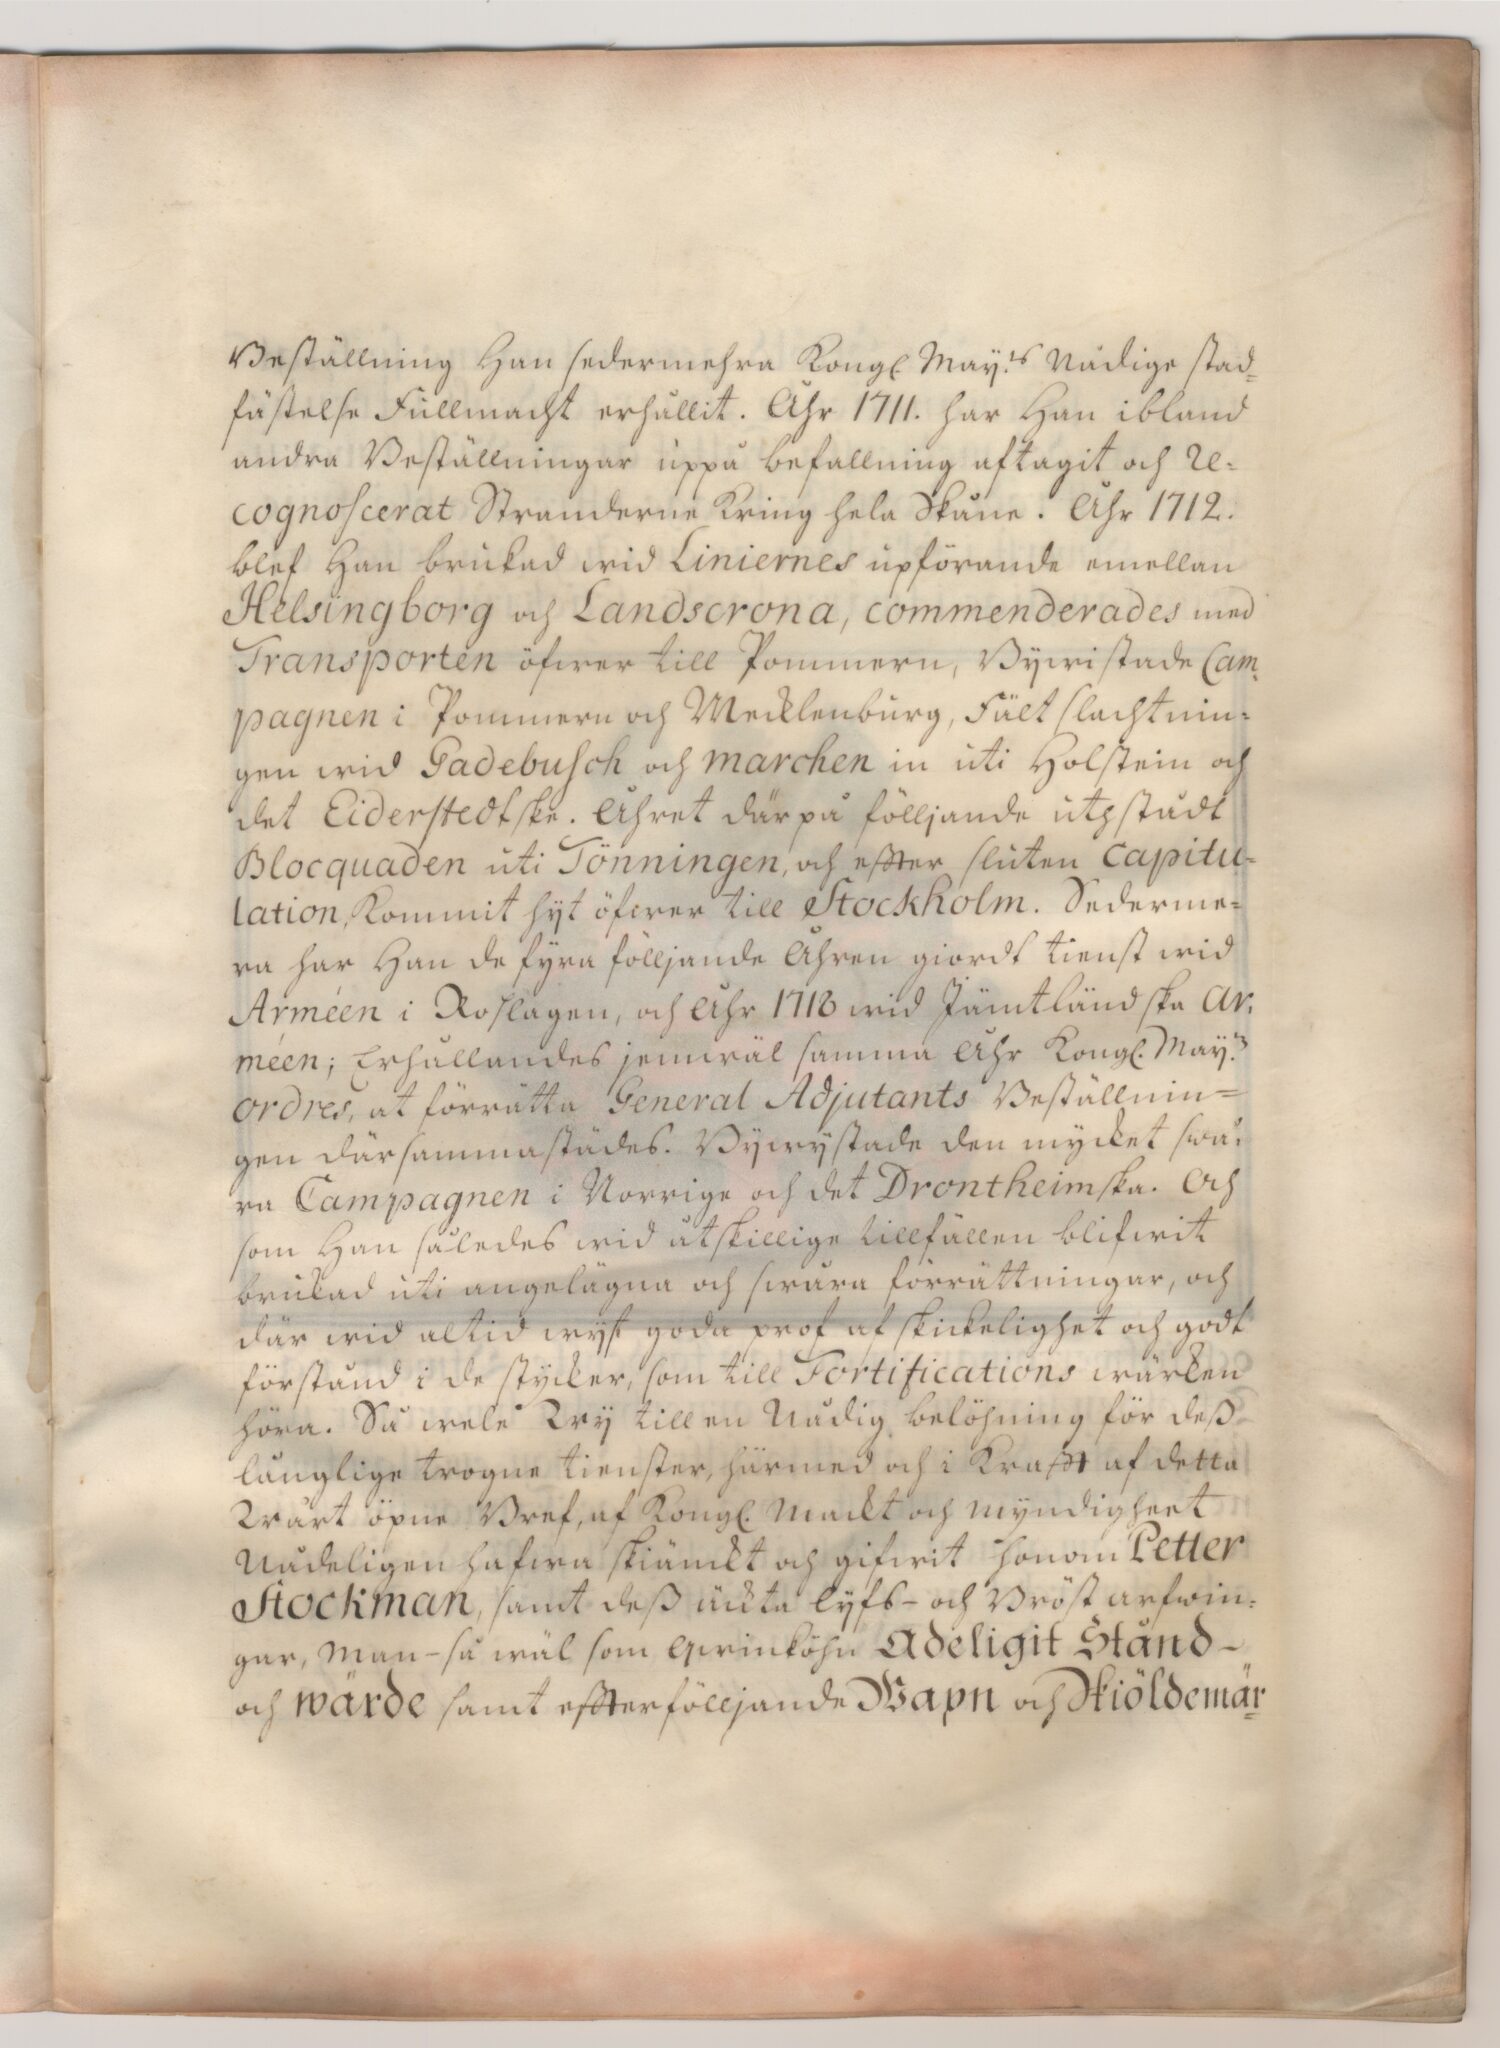 Beställning Han sedermehra Kongl May:ts Nådige stad-
fästelse Fullmacht erhållit. Åhr 1711. har Han ibland
andra Beställningar uppå befallning aftagit och Re-
cognoscerat Stranderne Kring hela Skåne. Åhr 1712.
blef Han brukad wid Liniernes upförande emellan
Helsingborg och Landscrona, commenderades med
Transporten öfwer till Pommern, Bywistade Cam-
pagnen i Pommern och Mecklenburg, Fält slachtnin-
gen wid Gadebusch och marchen in uti Holstein och
det Eiderstedtske. Åhret där på fölljande utstådt
Blocquaden uti Tönningen, och effter sluten Capitu-
lation, Kommit hyt öfwer till Stockholm. Sederme-
ra har Han de fyra fölljande Åhren giordt tienst wid
Arméen i Roslagen, och Åhr 1718 wid Jämtländska Ar-
méen; Erhållandes jemwäl samma Åhr Kongl. May:ts
ordres, at förrätta General Adjutants Beställnin-
gen därsammastädes. Bywystade den mycket swå-
ra Campagnen i Norrige och det Drontheimska. Och
som Han således wid åtskillige tillfällen blifwit
brukad uti angelägna och swåra förrättningar, och
där wid altid wyst goda prof af skickelighet och godt
förstånd i de stycker, som till Fortifications wärken
höra. Så wele Wy till en Nådig belöhning för deß
långlige trogne tienster, härmed och i Krafft af detta
Wårt öpne Bref, af Kongl. Mackt och Myndigheet
Nådeligen hafwa skiänckt och gifwit honom Petter
Stockman, samt deß äckta Lyfs- och Bröst arfwin-
gar, Man- så wäl som Qwinköhn Adeligit Stånd-
och wärde samt effterfölljande Wapn och Skiöldemär-